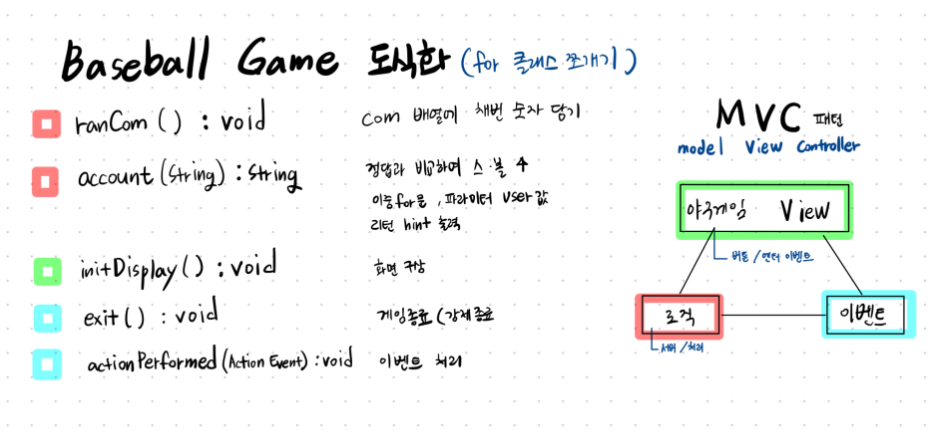 Baseball Game 도식화 (for 클래스 쪼개기)
ranCom() : void
com 배열에 채번 숫자 담기
account(String) : String
정답과 비교하여 스·볼 수
이중for문, 파라미터 user값
리턴 hint 출력
initDisplay() : void
화면 구상
exit() : void
게임종료 (강제종료
actionPerformed(Action Event) : void
이벤트 처리
MVC 패턴
model View Controller
야구게임 View
버튼/엔터 이벤트
로직
이벤트
서버/처리